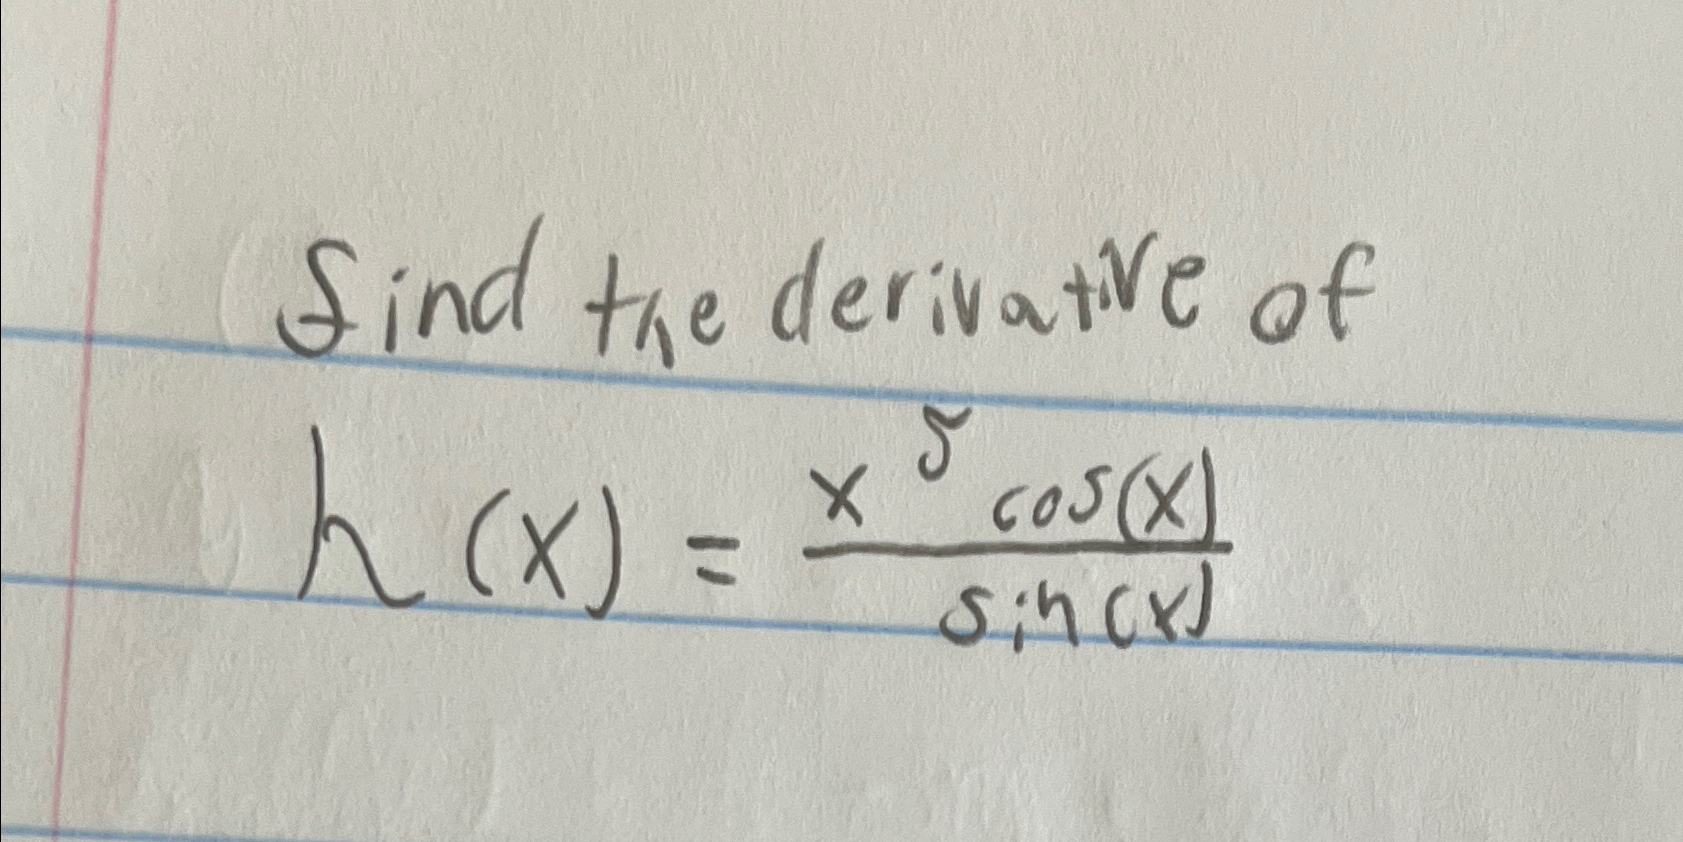 find the derivative of
h(x) = \frac{x^5 cos(x)}{sin(x)}